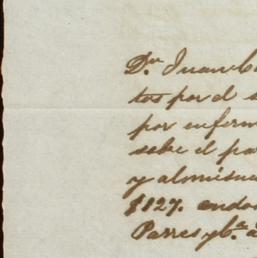 Dn. Juan C
tos por el s
por enferm
sebe el pa
y al mismo
$127. endo
Parres y ba. a